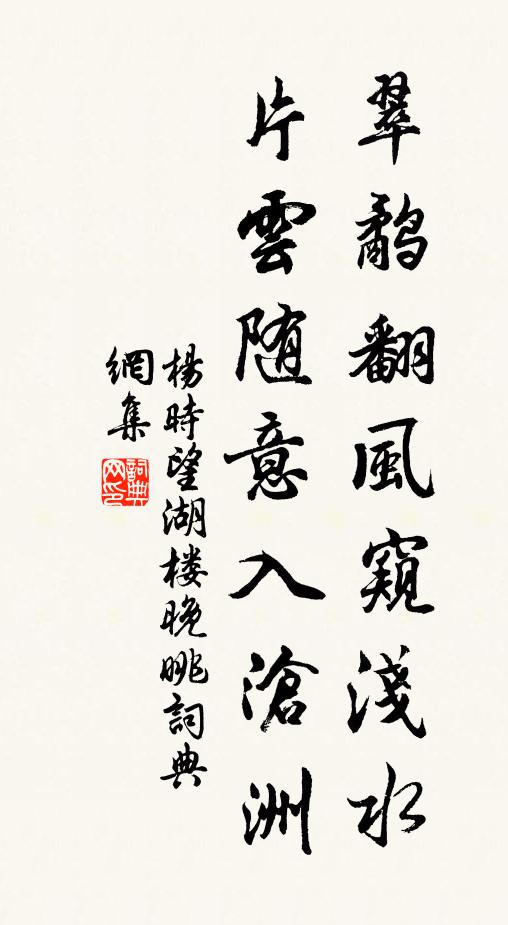 翠鷸翻風窺淺水
片雲随意入滄洲
楊時望湖楼晚眺詞典
網集
詞典
网印